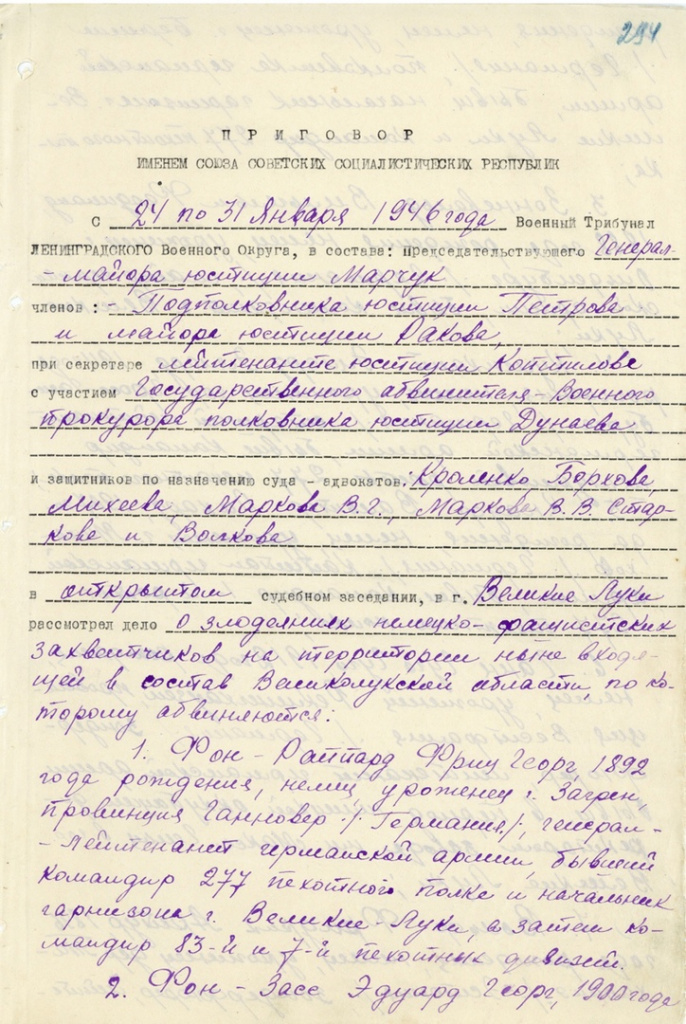 294
ПРИГОВОР
ИМЕНЕМ СОЮЗА СОВЕТСКИХ СОЦИАЛИСТИЧЕСКИХ РЕСПУБЛИК
С 24 по 31 Января 1946 года Военный Трибунал
ЛЕНИНГРАДСКОГО Военного Округа, в состава: председательствующего Генерал-
-майора юстиции Марчук
членов :- Подполковника юстиции Петрова
и майора юстиции Ракова,
при секретаре лейтенанте юстиции Коптилове
с участием Государственного обвинителя - Военного
прокурора полковника юстиции Дунаева
и защитников по назначению суда - адвокатов: Кроленко, Борхова,
Михеева, Маркова В.Г., Маркова В.В. Стар-
кова и Волкова
в открытом судебном заседании, в г. Великие Луки
рассмотрел дело о злодеяниях немецко-фашистских
захватчиков на территории ныне входя-
щей в состав Великолукской области, по ко-
торому обвиняются:
1. Фон-Раппард Фриц Георг, 1892
года рождения, немец, уроженец г.
провинция Ганновер /Германия/, генерал-
-лейтенант германской армии, бывший
командир 277 пехотного полка и начальник
гарнизона г. Великие-Луки, а затем ко-
мандир 83-й и 7-й пехотных дивизий.
2. Фон-Засс Эдуард Георг, 1900 года